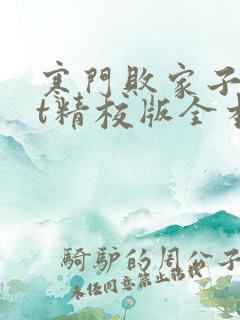 寒門敗家子
t精校版全本
騎驢的周公子
未任同意禁止轉載